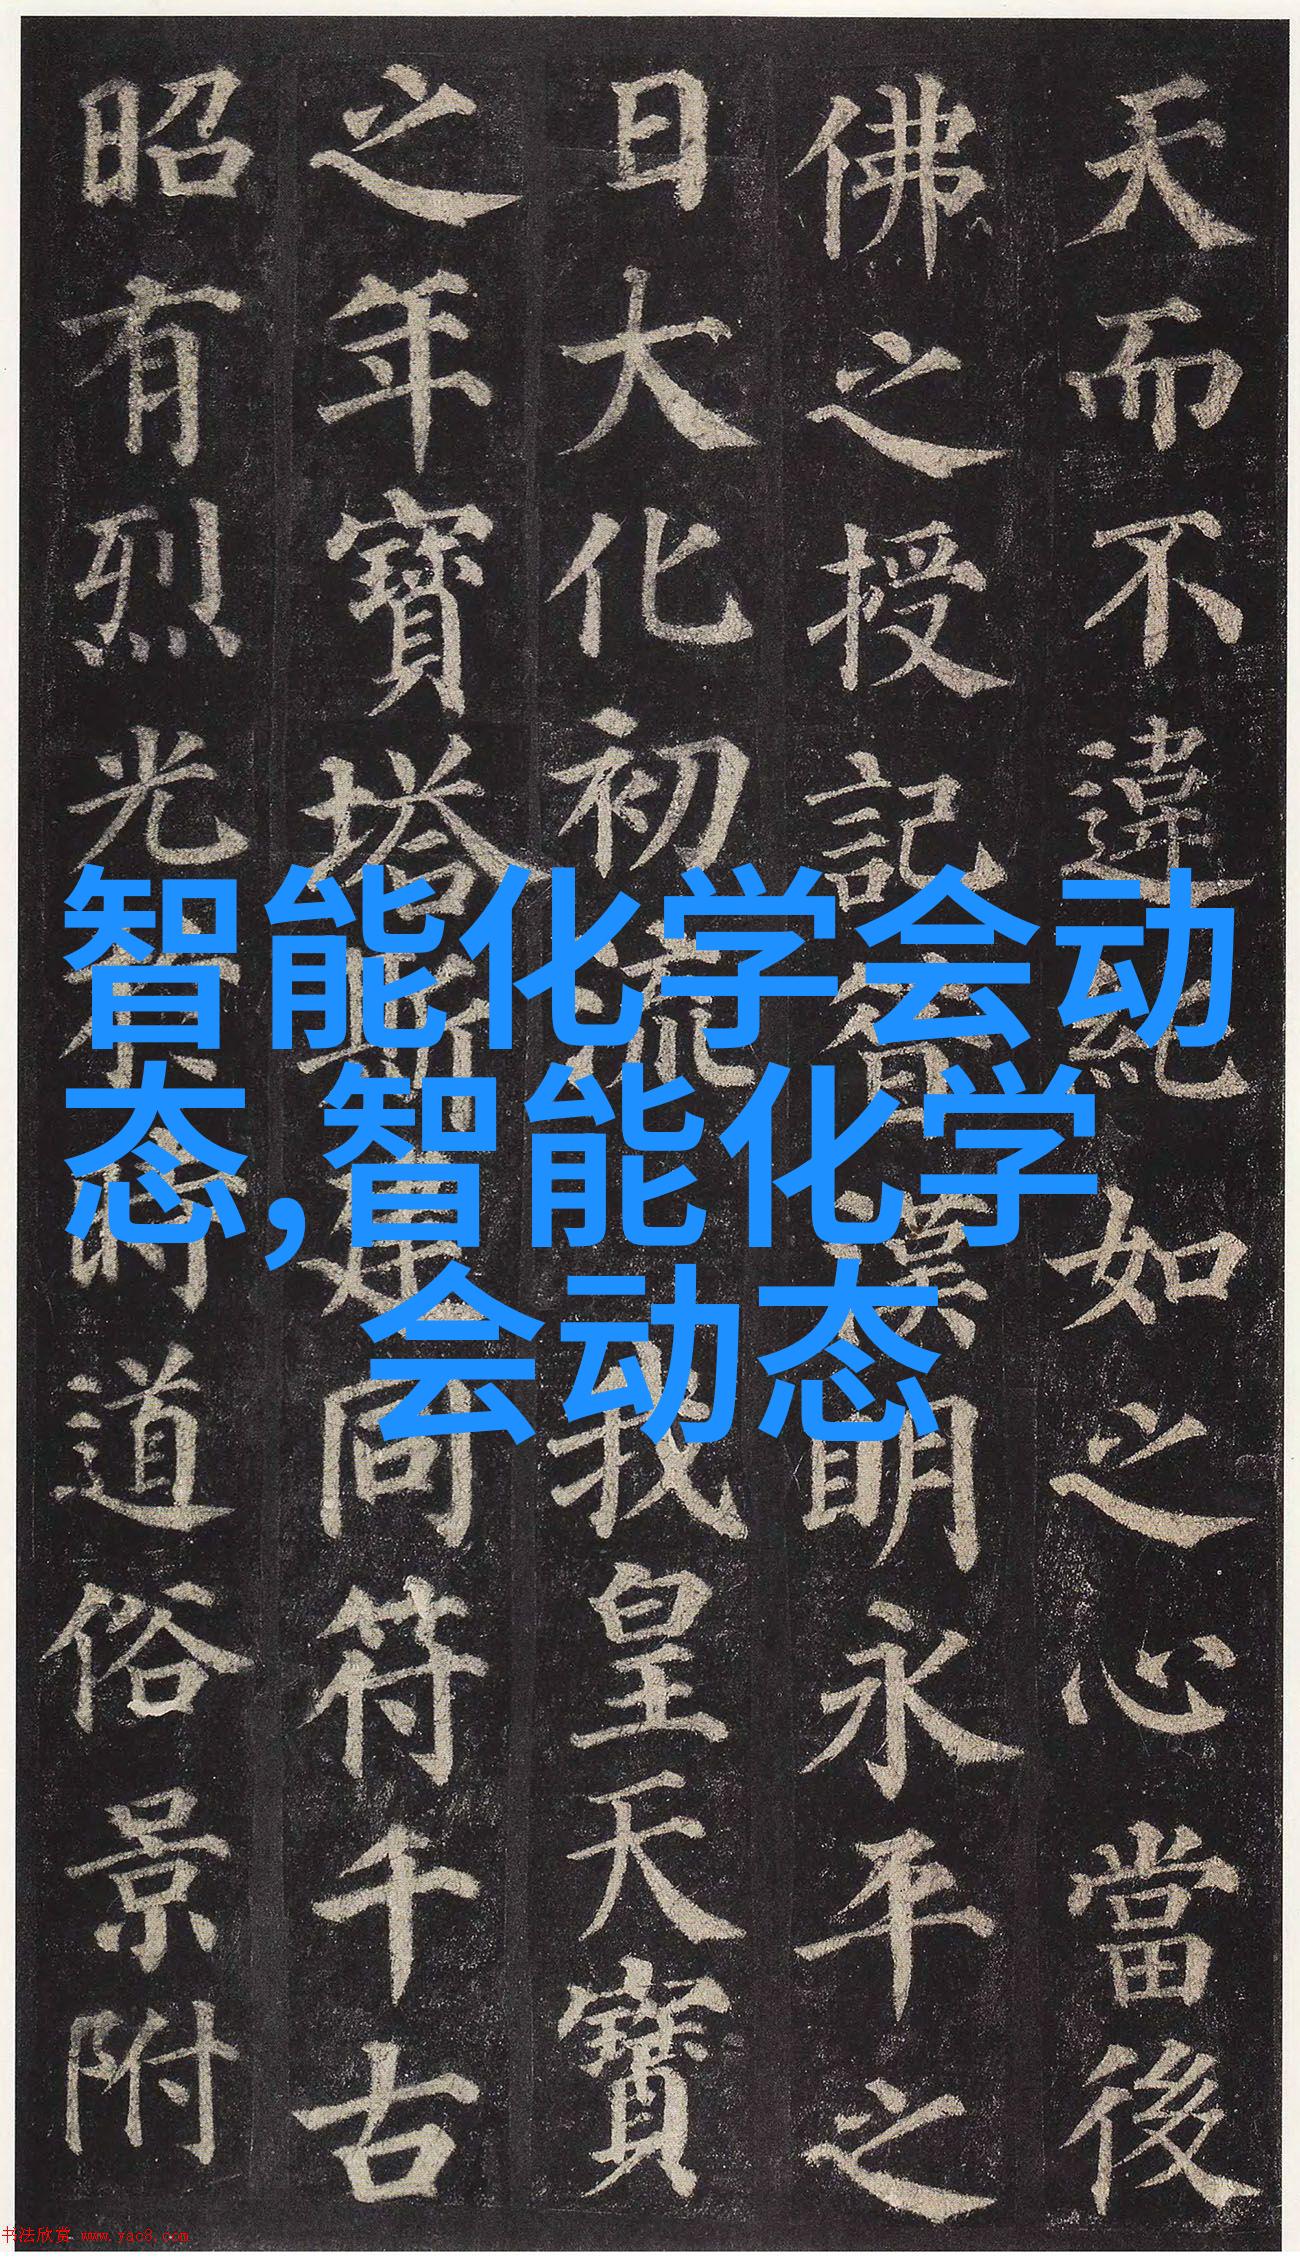 天而不違純如之心當後
佛之授記昔漢明永平之
日大化初流我皇天寶
之年寶塔斯建同符千古
昭有烈光於時道俗景附
智能化学会动
态,智能化学
会动态
书法欣赏 www.yac8.com